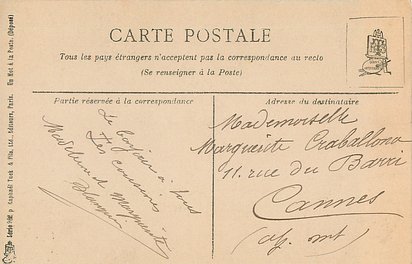 CARTE POSTALE
Tous les pays étrangers n'acceptent pas la correspondance au recto
(Se renseigner à la Poste)
Partie réservée à la correspondance
Adresse du destinataire
Le bonjour à tous
Les cousines
Madeleine & Marguerite
Mademoiselle
Marguerite Craballona
11. rue du Barri
Cannes
(Alp. mt)
Raphaël Tuck & Fils, Ltd., Editeurs, Paris. Un Mot à la Poste. (Déposé)